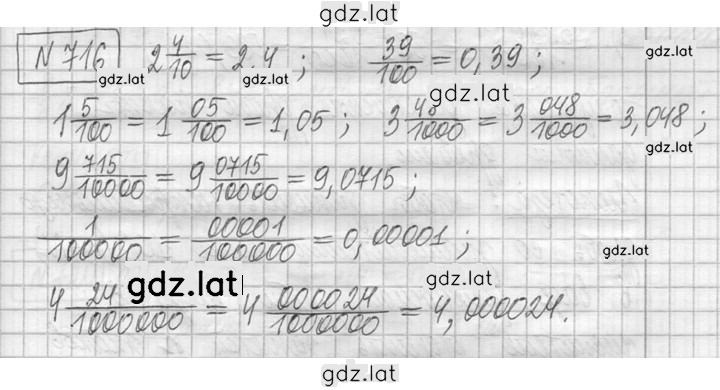 gdz.lat
N 716 2 4/10 = 2.4 ; 39/100 = 0,39 ;
gdz.lat gdz.lat gdz.lat
gdz.lat
1 5/100 = 1 05/100 = 1,05 ; 3 48/1000 = 3 048/1000 = 3,048 ;
gdz.lat
9 715/10000 = 9 0715/10000 = 9,0715 ;
1/100000 = 00001/100000 = 0,00001 ;
gdz.lat
gdz.lat gdz.lat
4 24/1000000 = 4 000024/1000000 = 4,000024.
gdz.lat